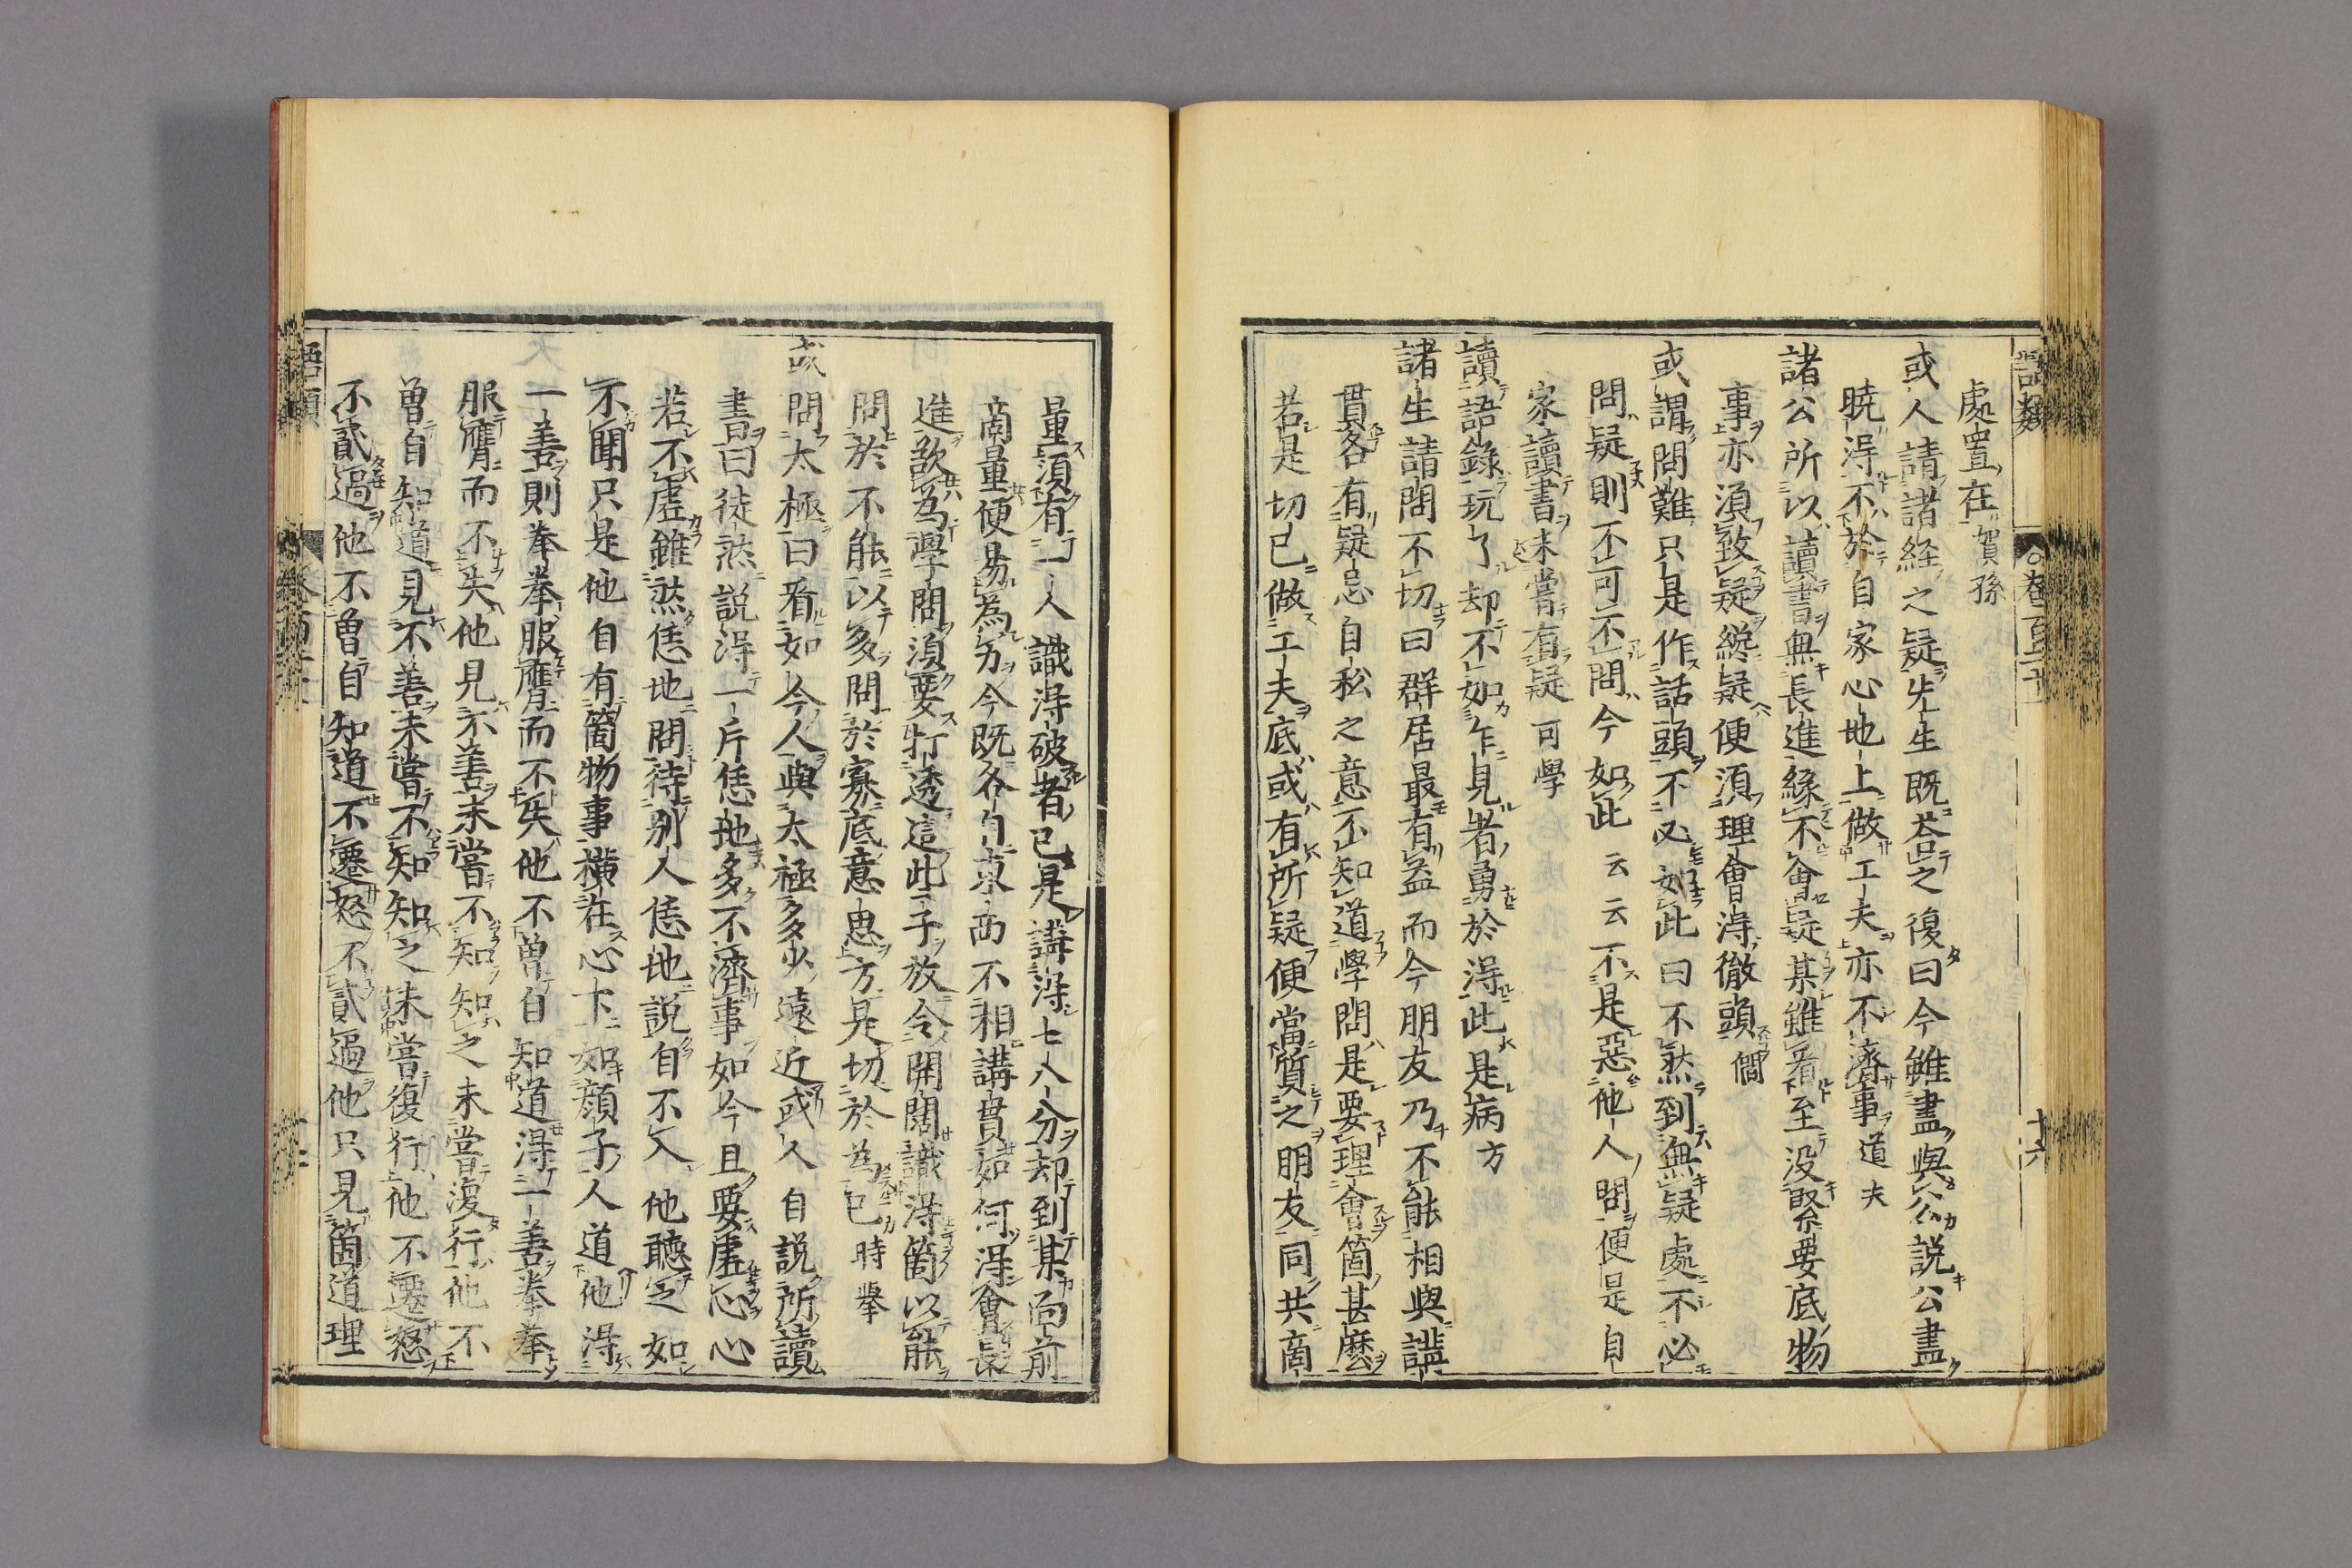 語類
卷百二十一
十六
處置在賀孫
或人請諸經之疑先生既荅之復曰今雖盡與公説公盡
曉得不於自家心地上做工夫亦不濟事道夫
諸公所以讀書無長進緣不會疑某雖看至没緊要底物
事亦須致疑纔疑便須理會得徹頭僩
或謂問難只是作話頭不必如此曰不然到無疑處不必
問疑則不可不問今如此云云不是惡他人問便是自
家讀書未嘗有疑可學
讀語錄玩了却不如乍見者勇於得此是病方
諸生請問不切曰群居最有益而今朋友乃不能相與講
貫各有疑忌自私之意不知道學問是要理會箇甚麼
若是切己做工夫底或有所疑便當質之朋友同共商
量須有一人識得破者已是講得七八分却到某面前
商量便易為力今既各自東西不相講貫如何得會長
進欲為學問須要打透這些子放令開闊識得箇以能
問於不能以多問於寡底意思方是切於為己時擧
或問太極曰看如今人與太極多少遠近或人自説所讀
書曰徒然説得一片恁地多不濟事如今且要虛心心
若不虛雖然恁地問待別人恁地説自不入他聽之如
不聞只是他自有箇物事橫在心下如顔子人道他得
一善則拳拳服膺而不失他不曾自知道得一善拳拳
服膺而不失他見不善未嘗不知知之未嘗復行他不
曾自知道見不善未嘗不知知之未嘗復行他不遷怒
不貳過他不曾自知道不遷怒不貳過他只見箇道理
語類